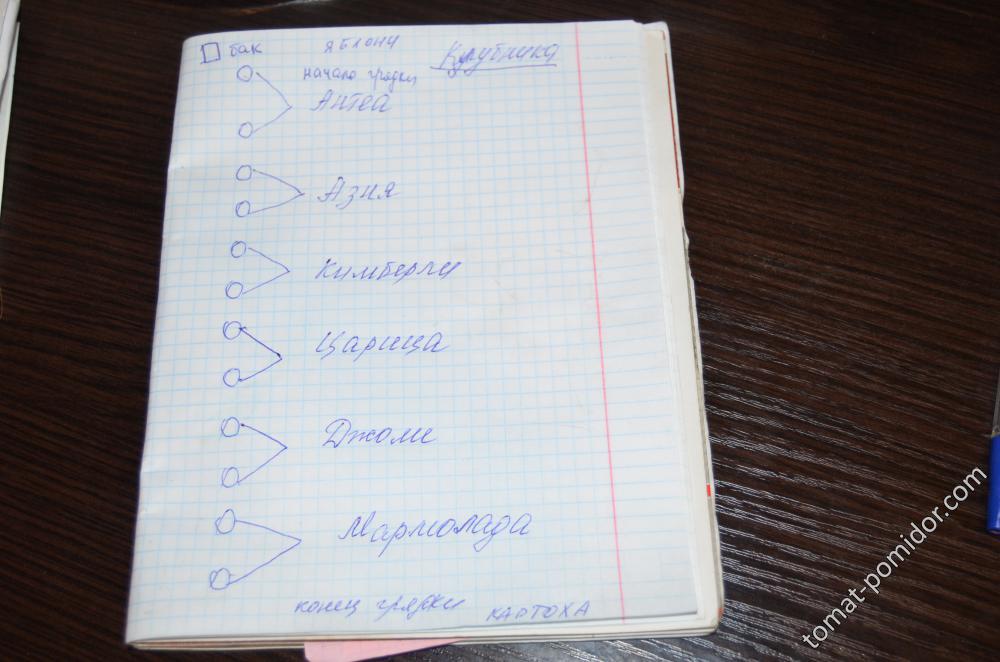 бак яблони Клубника
начало грядки
Антеа
Азия
Кимберли
Царица
Джоли
Мармолада
конец грядки картоха
tomat-pomidor.com